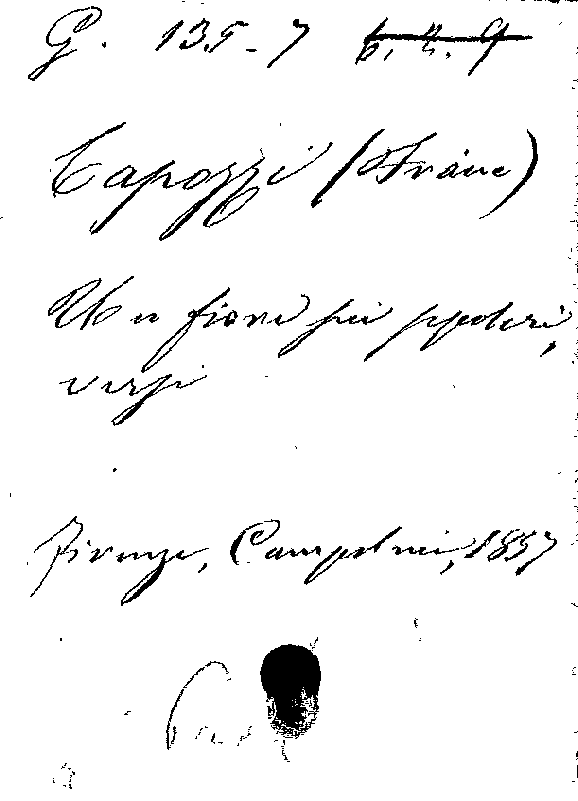 G. 135-7 b. 2. 9
Capozzi (Franc)
Un fiore sui sepolcri,
versi
Firenze, Campolmi, 1857